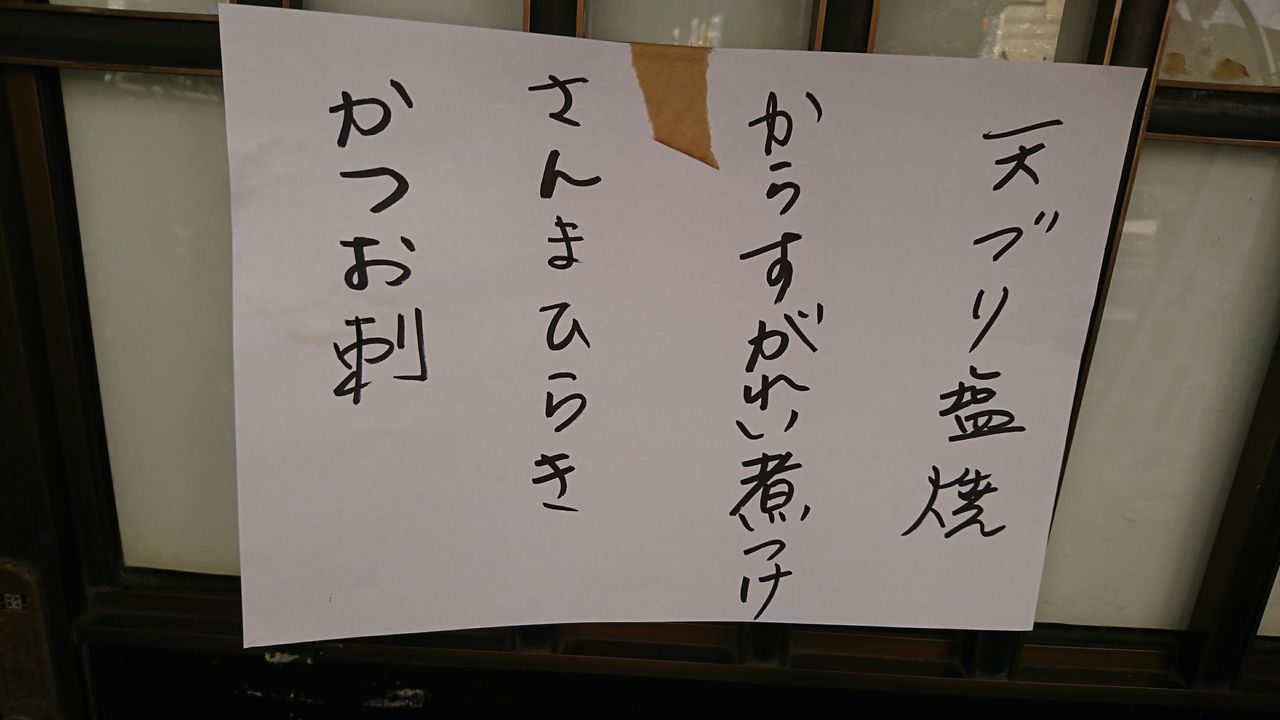 天ブリ塩焼
からすがれい煮つけ
さんまひらき
かつお刺